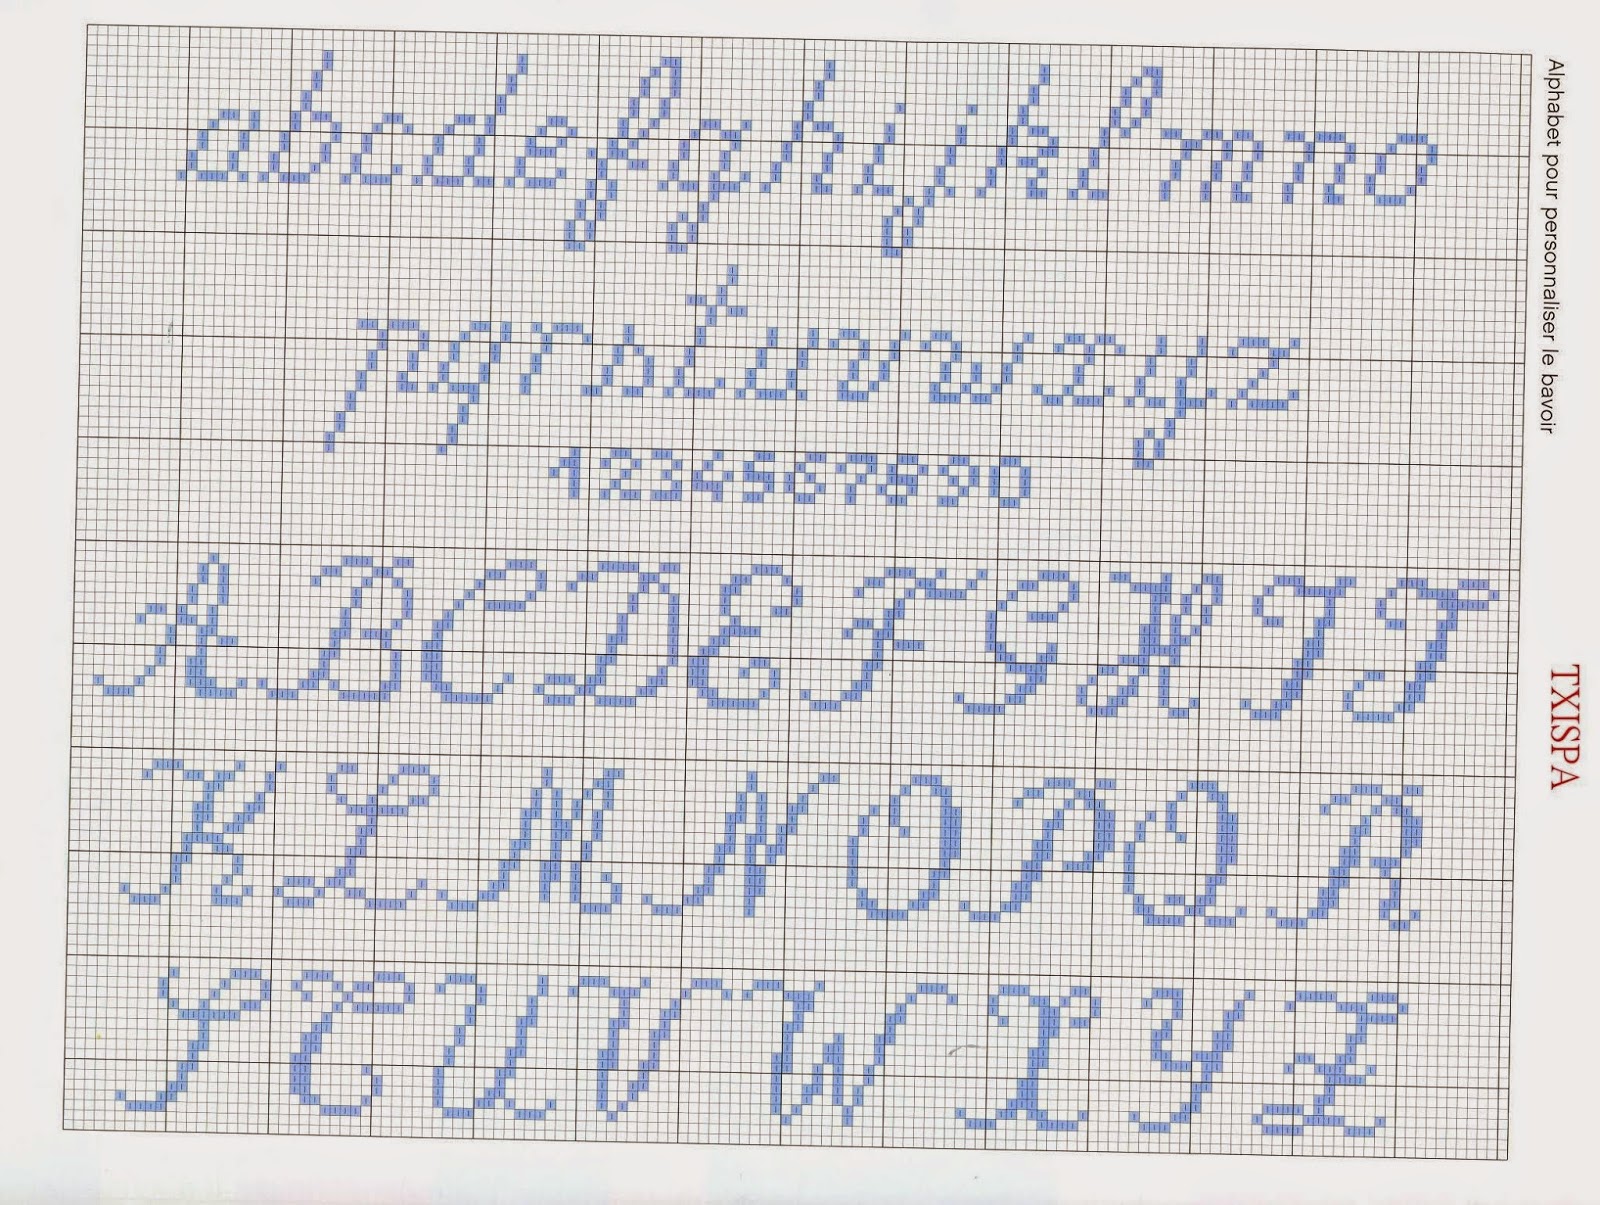 abcdefghijklmno
pqrstuvwxyz
1234567890
ABCDEFGHIJ
KLMNOPQR
STUVWXYZ
Alphabet pour personnaliser le bavoir
TXISPA